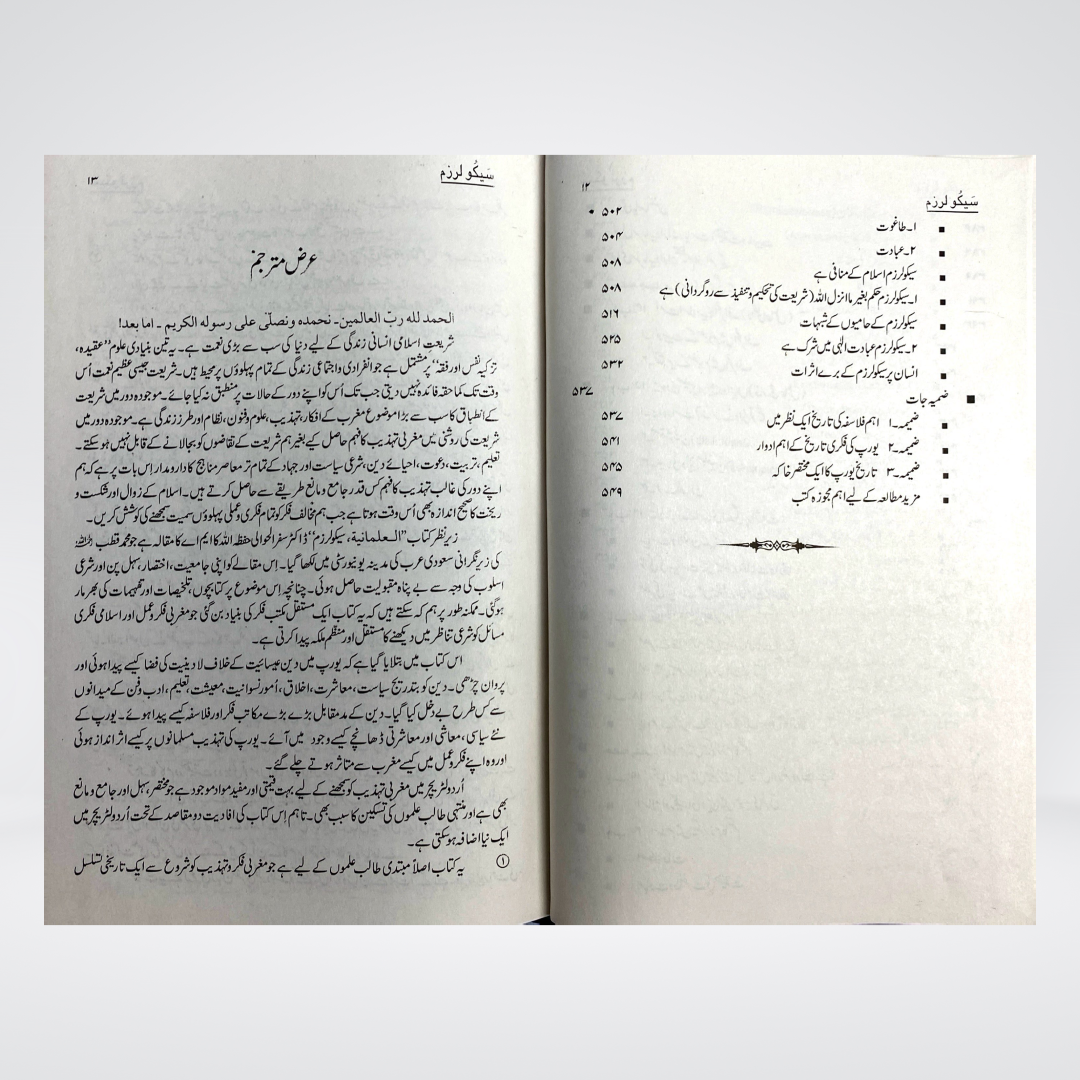 سیکُولرزم
۱۲
۱۔طاغوت ۵۰۲
۲۔عبادت ۵۰۴
سیکولرزم اسلام کے منافی ہے ۵۰۸
۱۔سیکولرزم حکم بغیر ما انزل اللہ (شریعت کی تحکیم و تنفیذ سے روگردانی) ہے ۵۰۸
سیکولرزم کے حامیوں کے شبہات ۵۱۶
۲۔سیکولرزم عبادت الٰہی میں شرک ہے ۵۲۵
انسان پر سیکولرزم کے برے اثرات ۵۳۲
ضمیمہ جات ۵۳۷
ضمیمہ۔۱ اہم فلاسفہ کی تاریخ ایک نظر میں ۵۳۷
ضمیمہ۔۲ یورپ کی فکری تاریخ کے اہم ادوار ۵۴۱
ضمیمہ۔۳ تاریخ یورپ کا ایک مختصر خاکہ ۵۴۵
مزید مطالعہ کے لیے اہم مجوزہ کتب ۵۴۹
سیکُولرزم
۱۳
عرض مترجم
الحمد لله ربّ العالمين۔ نحمده ونصلّی علی رسوله الکریم ۔ اما بعد!
شریعت اسلامی انسانی زندگی کے لیے دنیا کی سب سے بڑی نعمت ہے۔ یہ تین بنیادی علوم ”عقیدہ،
تزکیہ نفس اور فقہ“ پر مشتمل ہے جو انفرادی و اجتماعی زندگی کے تمام پہلوؤں پر محیط ہیں۔ شریعت جیسی عظیم نعمت اُس
وقت تک کما حقہ فائدہ نہیں دیتی جب تک اُس کو اپنے دور کے حالات پر منطبق نہ کیا جائے۔ موجودہ دور میں شریعت
کے انطباق کا سب سے بڑا موضوع مغرب کے افکار، تہذیب، علوم و فنون، نظام اور طرز زندگی ہے۔ موجودہ دور میں
شریعت کی روشنی میں مغربی تہذیب کا فہم حاصل کیے بغیر ہم شریعت کے تقاضوں کو بجا لانے کے قابل نہیں ہو سکتے۔
تعلیم، تربیت، دعوت، احیائے دین، شرعی سیاست اور جہاد کے تمام تر معاصر مناہج کا دارومدار اِس بات پر ہے کہ ہم
اپنے دور کی غالب تہذیب کا فہم کس قدر جامع و مانع طریقے سے حاصل کرتے ہیں۔ اسلام کے زوال اور شکست و
ریخت کا صحیح اندازہ بھی اُس وقت ہوتا ہے جب ہم مخالف فکر کو تمام فکری و عملی پہلوؤں سمیت سمجھنے کی کوشش کریں۔
زیرِ نظر کتاب ”العلمانیة، سیکولرزم“ ڈاکٹر سفر الحوالی حفظہ اللہ کا ایم اے کا مقالہ ہے جو محمد قطب رحمہ اللہ
کی زیرِ نگرانی سعودی عرب کی مدینہ یونیورسٹی میں لکھا گیا۔ اِس مقالے کو اپنی جامعیت، اختصار، سہل پن اور شرعی
اسلوب کی وجہ سے بے پناہ مقبولیت حاصل ہوئی۔ چنانچہ اِس موضوع پر کتابچوں، تلخیصات اور تفہیمات کی بھرمار
ہو گئی۔ ممکنہ طور پر ہم کہہ سکتے ہیں کہ یہ کتاب ایک مستقل مکتب فکر کی بنیاد بن گئی جو مغربی فکر و عمل اور اسلامی فکری
مسائل کو شرعی تناظر میں دیکھنے کا مستقل اور منظم ملکہ پیدا کرتی ہے۔
اس کتاب میں بتلایا گیا ہے کہ یورپ میں دین عیسائیت کے خلاف لادینیت کی فضا کیسے پیدا ہوئی اور
پروان چڑھی۔ دین کو بتدریج سیاست، معاشرت، اخلاق، اُمور نسوانیت، معیشت، تعلیم، ادب و فن کے میدانوں
سے کس طرح بے دخل کیا گیا۔ دین کے مدمقابل بڑے بڑے مکاتب فکر اور فلاسفہ کیسے پیدا ہوئے۔ یورپ کے
نئے سیاسی، معاشی اور معاشرتی ڈھانچے کیسے وجود میں آئے۔ یورپ کی تہذیب مسلمانوں پر کیسے اثر انداز ہوئی
اور وہ اپنے فکر و عمل میں کیسے مغرب سے متاثر ہوتے چلے گئے۔
اُردو لٹریچر میں مغربی تہذیب کو سمجھنے کے لیے بہت قیمتی اور مفید مواد موجود ہے جو مختصر، سہل اور جامع و مانع
بھی ہے اور منتہی طالب علموں کی تسکین کا سبب بھی۔ تاہم اِس کتاب کی افادیت دو مقاصد کے تحت اُردو لٹریچر میں
ایک نیا اضافہ ہو سکتی ہے۔
① یہ کتاب اصلاً مبتدی طالب علموں کے لیے ہے جو مغربی فکر و تہذیب کو شروع سے ایک تاریخی تسلسل